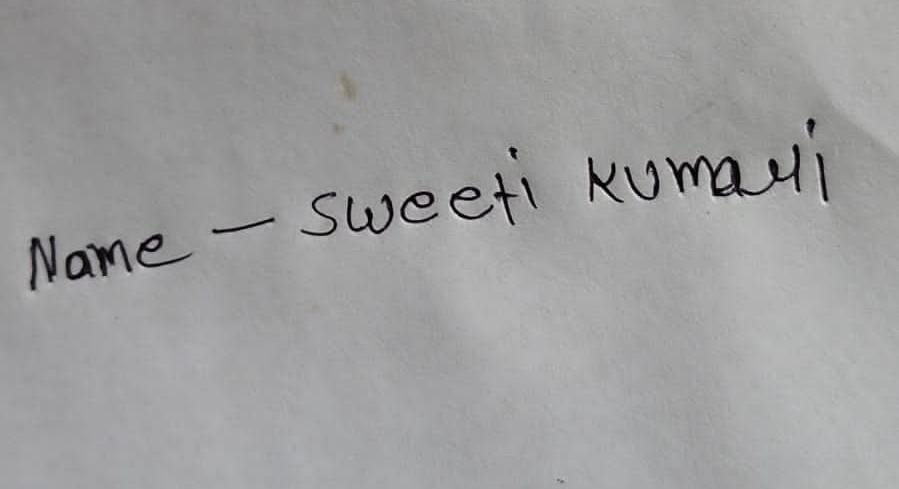 Name - Sweeti Kumari